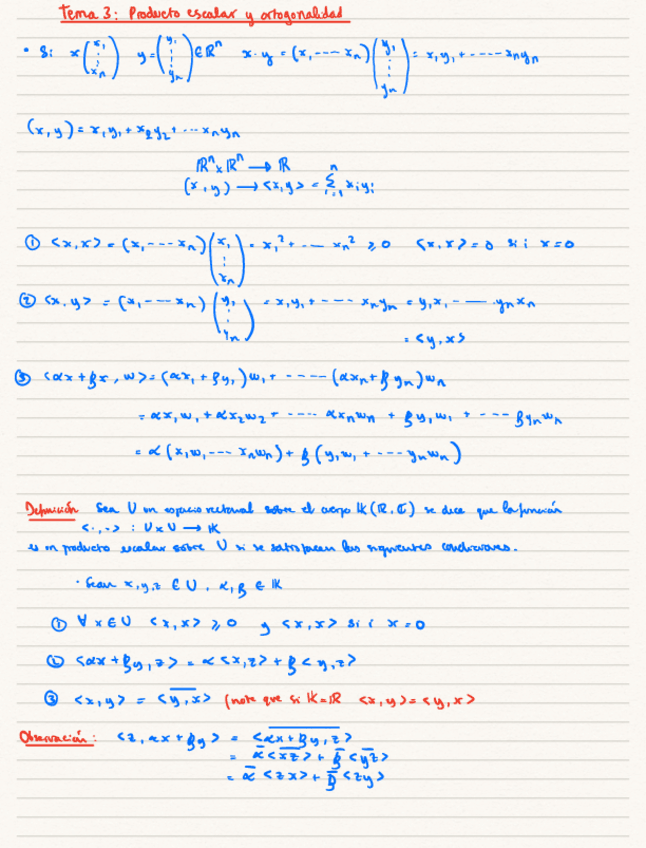 Tema 3: Producto escalar y ortogonalidad
• Si x(x₁ ⋮ xₙ) y=(y₁ ⋮ yₙ)∈ℝⁿ x·y = (x₁ ---- xₙ)(y₁ ⋮ yₙ) = x₁y₁+-----xₙyₙ
(x,y) = x₁y₁+x₂y₂+...xₙyₙ
ℝⁿxℝⁿ → ℝ
(x,y) → <x,y> = Σⁿᵢ₌₁ xᵢyᵢ
① <x,x> = (x₁---xₙ)(x₁ ⋮ xₙ) = x₁²+---xₙ² ≥0 <x,x>=0 sii x=0
② <x.y> = (x₁---xₙ)(y₁ ⋮ yₙ) = x₁y₁+----xₙyₙ = y₁x₁-----yₙxₙ
= <y,x>
③ <αx+βx,w> = (αx₁+βy₁)w₁+----(αxₙ+βyₙ)wₙ
= αx₁w₁+αx₂w₂+----αxₙwₙ + βy₁w₁+---βyₙwₙ
= α(x₁w₁----xₙwₙ)+β(y₁w₁+---yₙwₙ)
Definición Sea U un espacio vectorial sobre el cuerpo 𝕂(ℝ,ℂ) se dice que la función
<·,·> : UxU → 𝕂
es un producto escalar sobre U si se satisfacen las siguientes condiciones.
· Sean x,y,z ∈U, α,β ∈ 𝕂
① ∀x∈U <x,x> ≥0 y <x,x> sii x=0
② <αx+βy,z> = α<x,z>+β<y,z>
③ <x,y> = <y̅,̅x̅> (note que si 𝕂=ℝ <x,y>=<y,x>
Observación: <z,αx+βy> = <α̅x̅+̅β̅y̅,̅z̅>
= α̅<x̅z̅>+β̅<y̅z̅>
= α̅<zx>+β̅<zy>